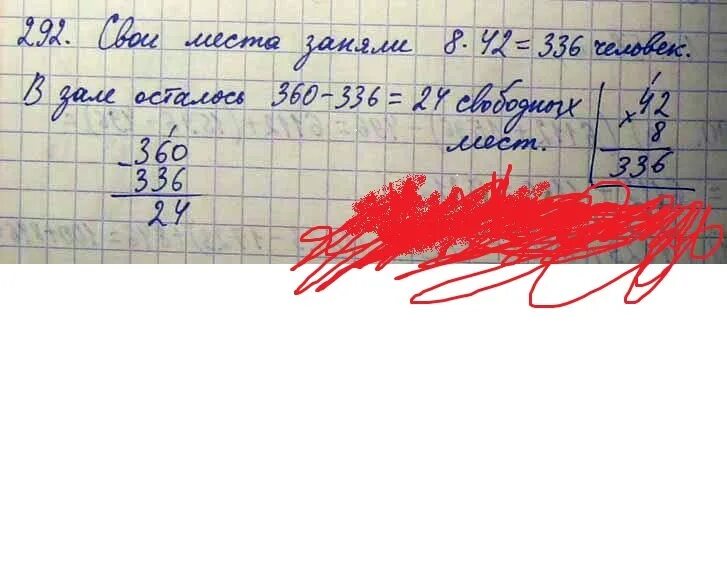 292. Свои места заняли 8·42=336 человек.
В зале осталось 360-336=24 свободных
мест.
-360
336
24
×42
8
336